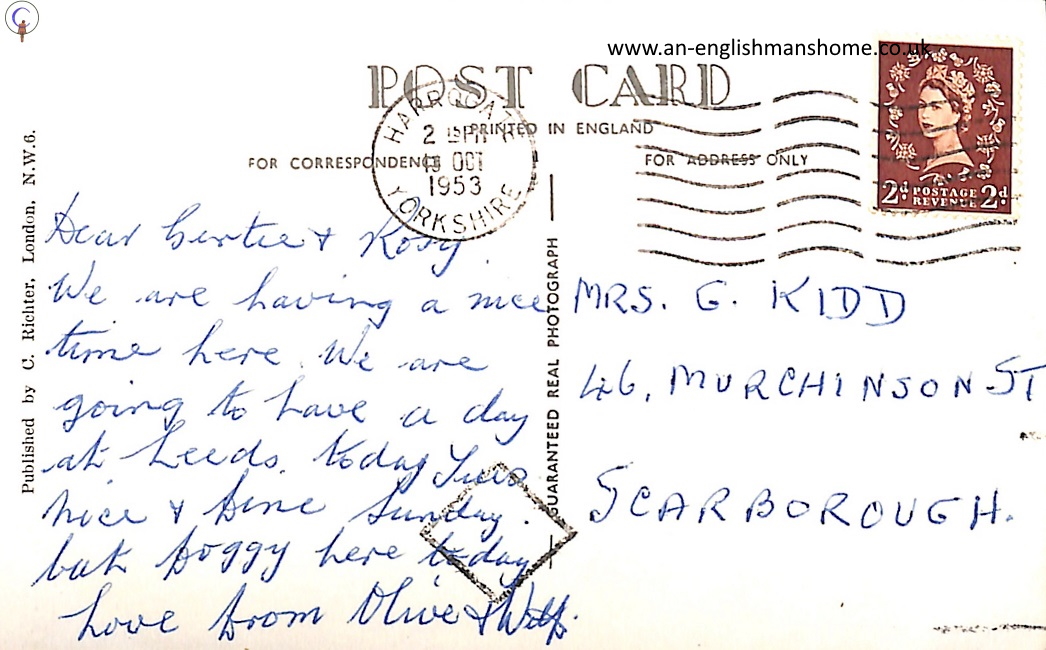 www.an-englishmanshome.co.uk
POST CARD
PRINTED IN ENGLAND
FOR CORRESPONDENCE
FOR ADDRESS ONLY
HARROGATE
2 PM
OCT
1953
YORKSHIRE
2d POSTAGE 2d
REVENUE
Published by C. Richter, London, N.W.6.
GUARANTEED REAL PHOTOGRAPH
Dear Gertie & Rosy.
We are having a nice
time here. We are
going to have a day
at Leeds. today Tues
nice & fine Sunday.
but foggy here today
Love from Olive & Wilf.
MRS. G. KIDD
46, MURCHINSON ST
SCARBOROUGH.